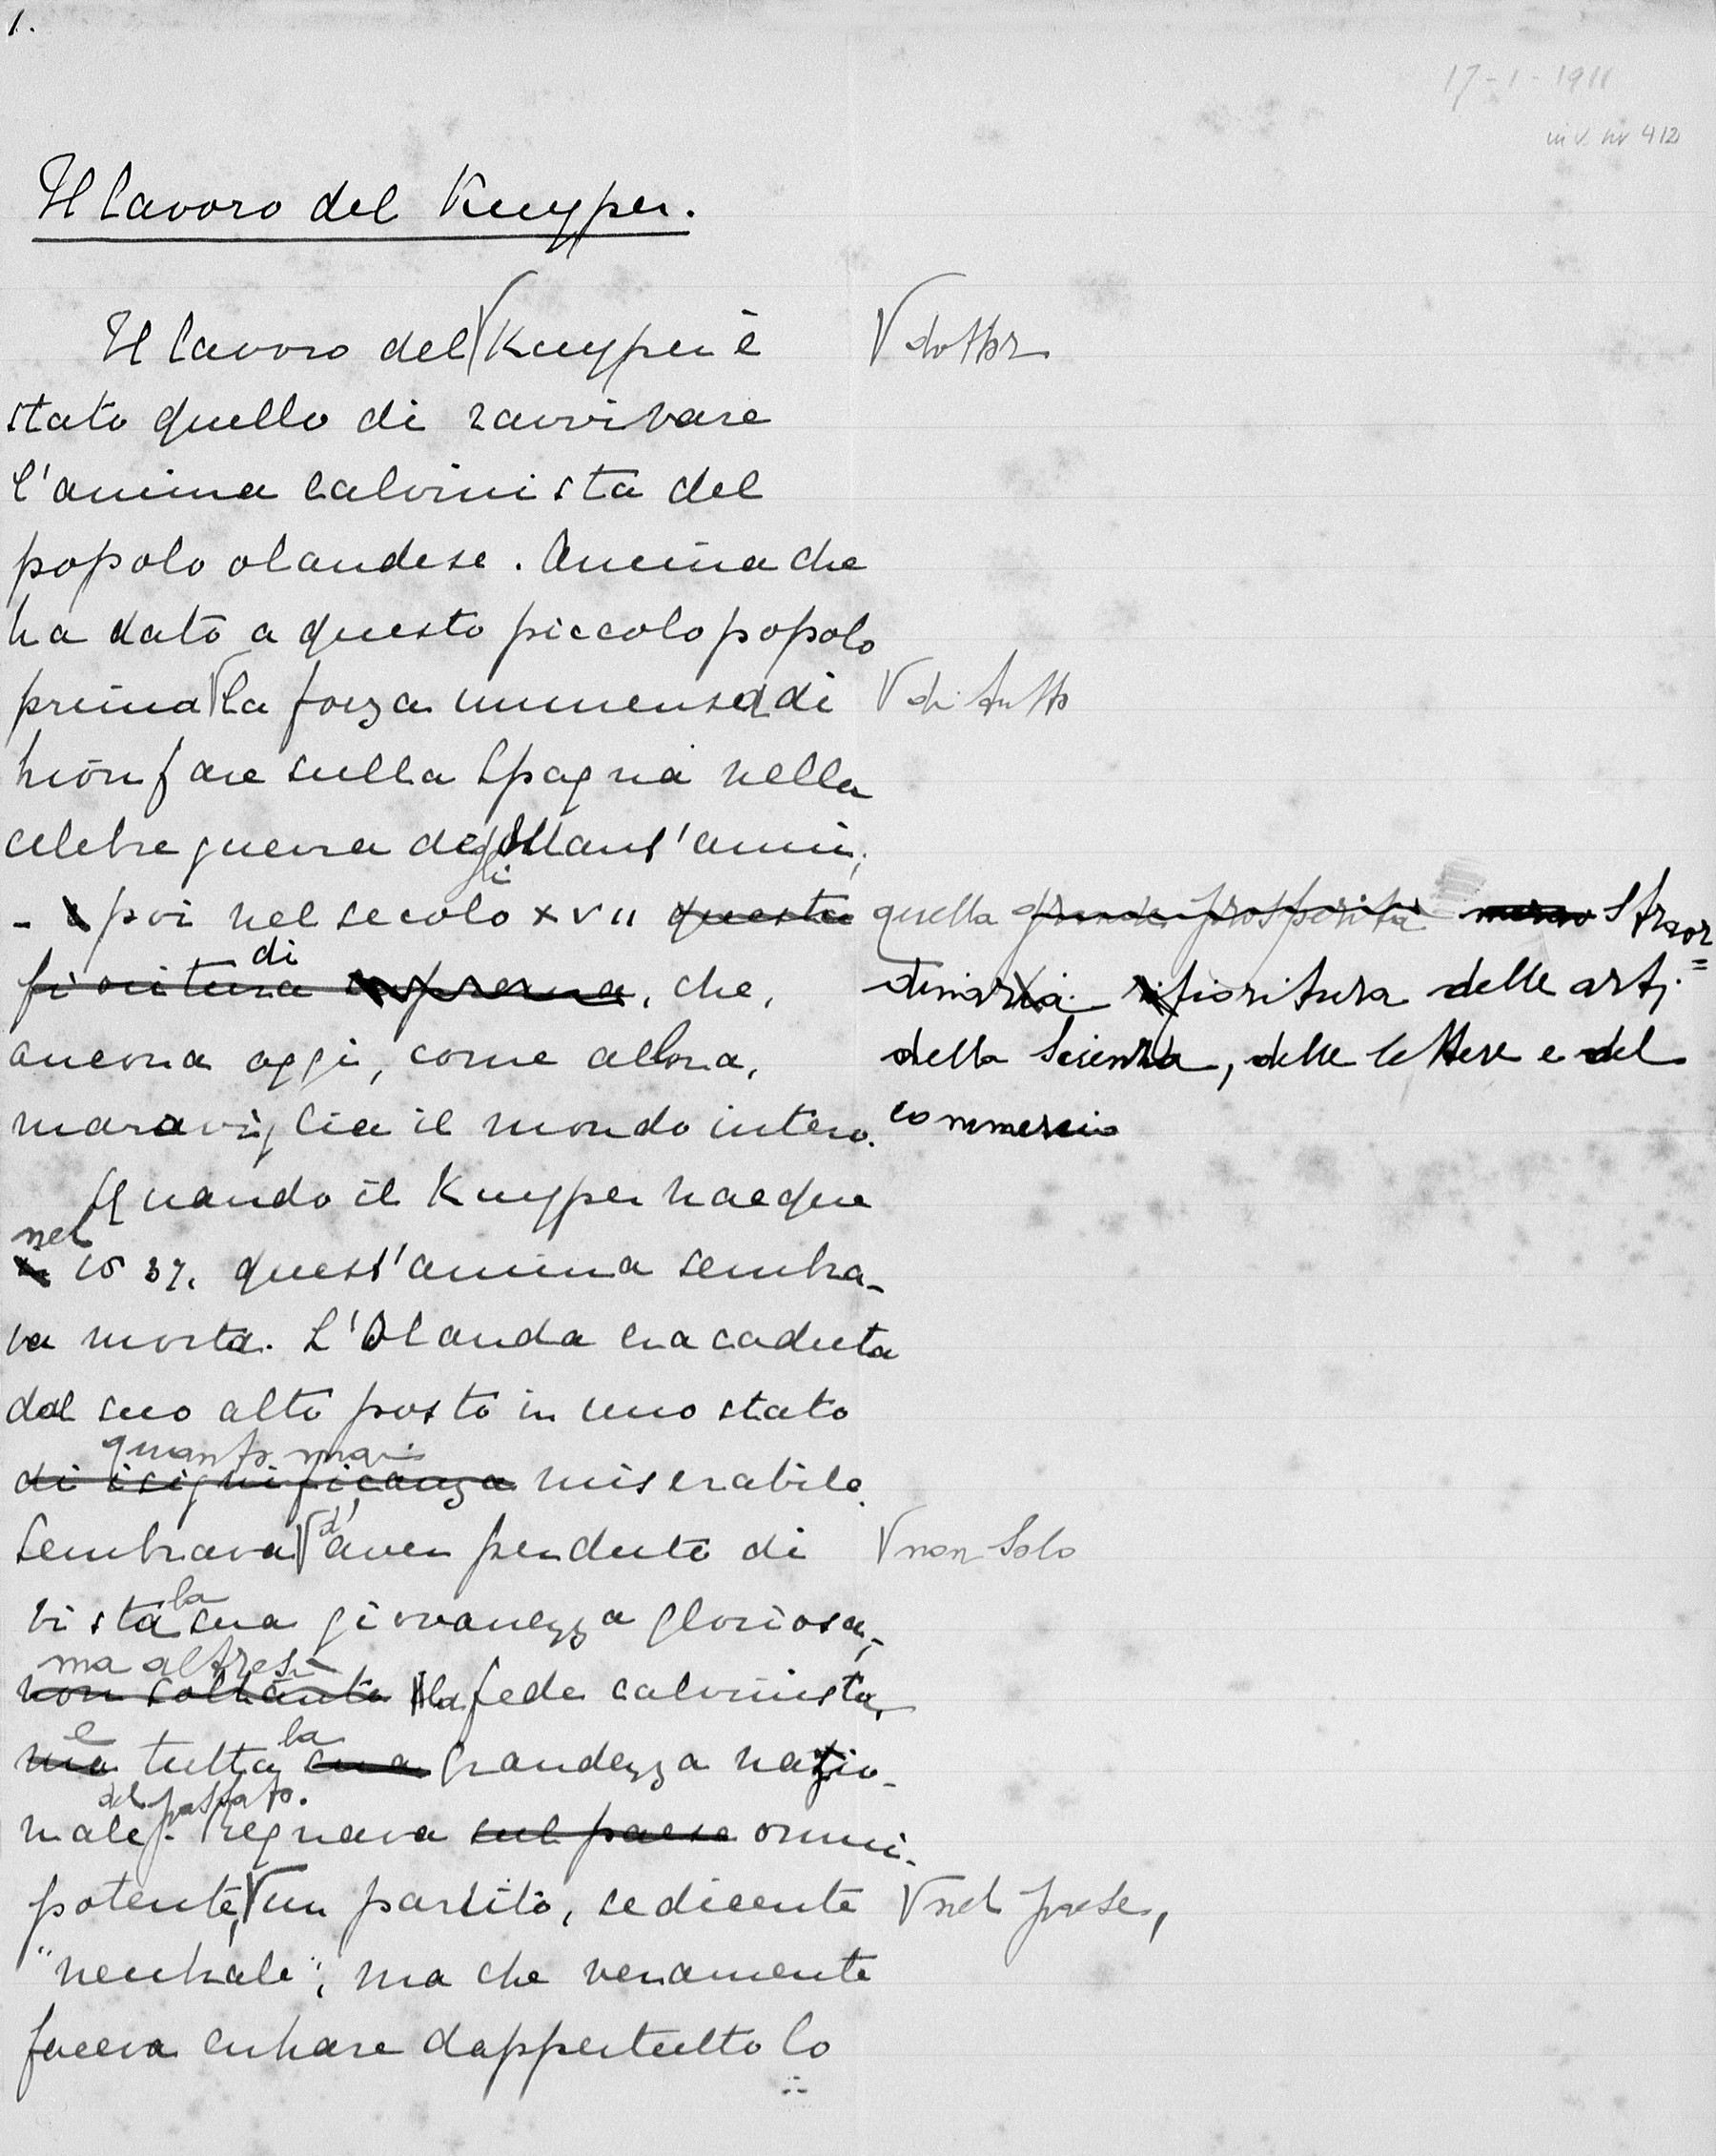 1.
17-1-1911
inv. nr 412
Il lavoro del Kuyper.
Il lavoro del √ Kuyper è √ dottor
stato quello di ravvivare
l'anima calvinista del
popolo olandese. Anima che
ha dato a questo piccolo popolo
prima √ la forza immensa di √ di tutto
trionfare sulla Spagna nella
celebre guerra degli ottant'anni;
- poi nel secolo XVII questa quella grande prosperità straor=
di
fioritura suprema, che, dinaria fioritura delle arti
ancora oggi, come allora, della scienza, delle lettere e del
maraviglia il mondo intero. commercio
Quando il Kuyper nacque
nel
in 1837. quest'anima sembra-
va morta. L'Olanda era caduta
dal suo alto posto in uno stato
quanto mai
di isignificanza miserabile.
Sembrava √ d'aver perduto di √ non solo
vista la sua giovanezza gloriosa,
ma altresì
non soltanto la fede calvinista,
e la
ma tutta sua grandezza nazio-
del passato.
nale. Regnava sul paese onni-
potente, √ un partito, sedicente √ nel paese,
"neutrale", ma che veramente
faceva entrare dappertutto lo